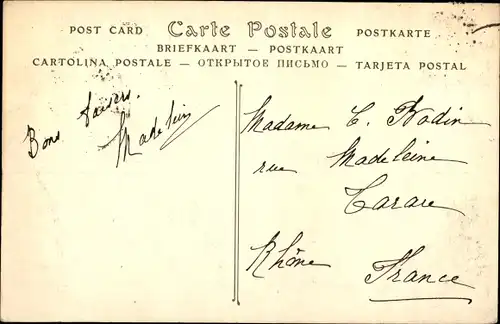 POST CARD Carte Postale POSTKARTE
BRIEFKAART — POSTKAART
CARTOLINA POSTALE — ОТКРЫТОЕ ПИСЬМО — TARJETA POSTAL
Bons baisers.
Madelein
Madame C. Bodin
rue Madeleine
Tarare
Rhône
France